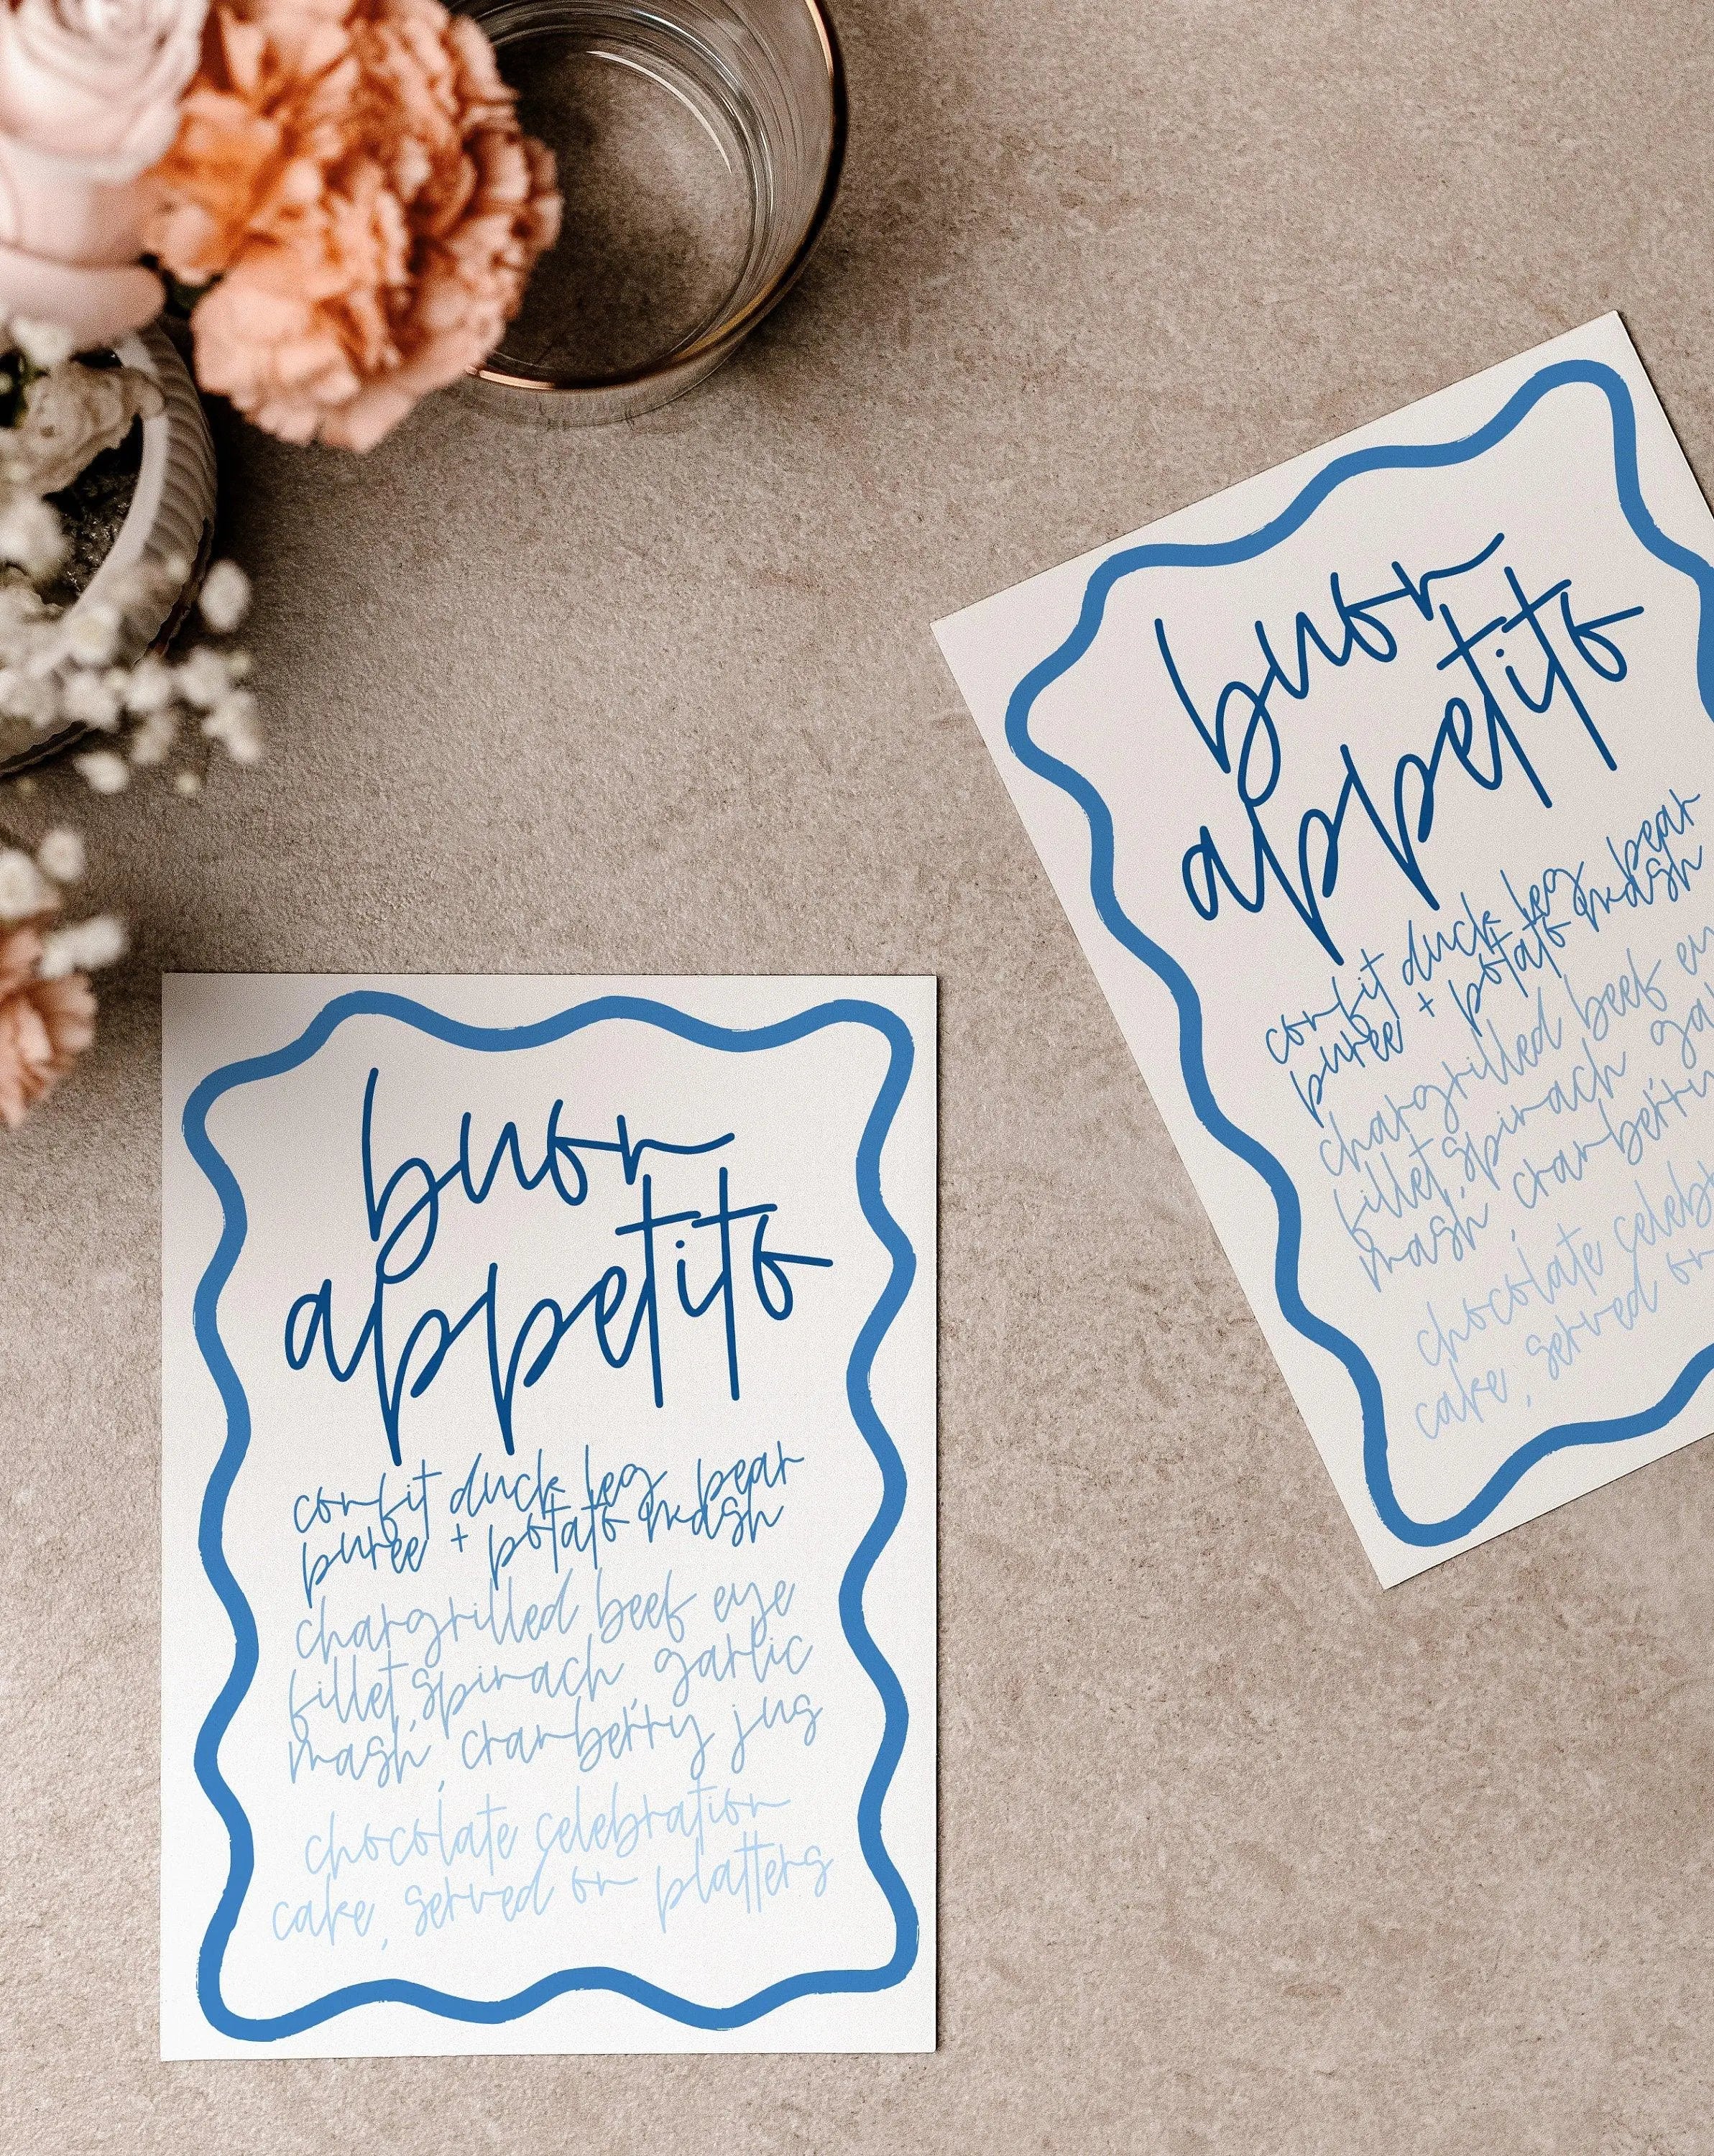 buon
appetito
confit duck leg, pear
puree + potato mash
chargrilled beef eye
fillet, spinach, garlic
mash, cranberry jus
chocolate celebration
cake, served on platters
buon
appetito
confit duck leg, pear
puree + potato mash
chargrilled beef
fillet, spinach,
mash, cranberry
chocolate
cake, served on